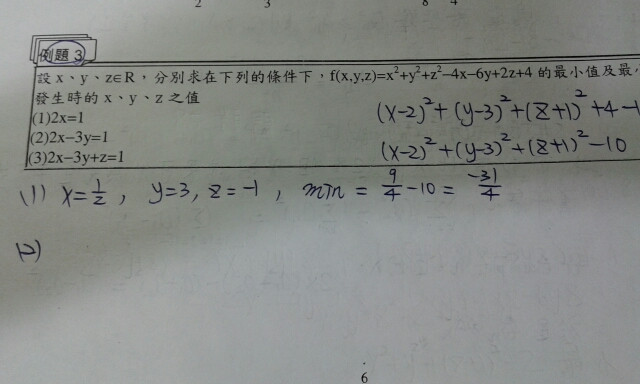 2 3 8 4
例題 3
設 x、y、z∈R，分別求在下列的條件下，f(x,y,z)=x²+y²+z²−4x−6y+2z+4 的最小值及最
發生時的 x、y、z 之值
(1)2x=1
(x-2)²+(y-3)²+(z+1)²+4-1
(2)2x−3y=1
(3)2x−3y+z=1
(x-2)²+(y-3)²+(z+1)²-10
(1) x=1/2, y=3, z=-1, min = 9/4 -10 = -31/4
(2)
6